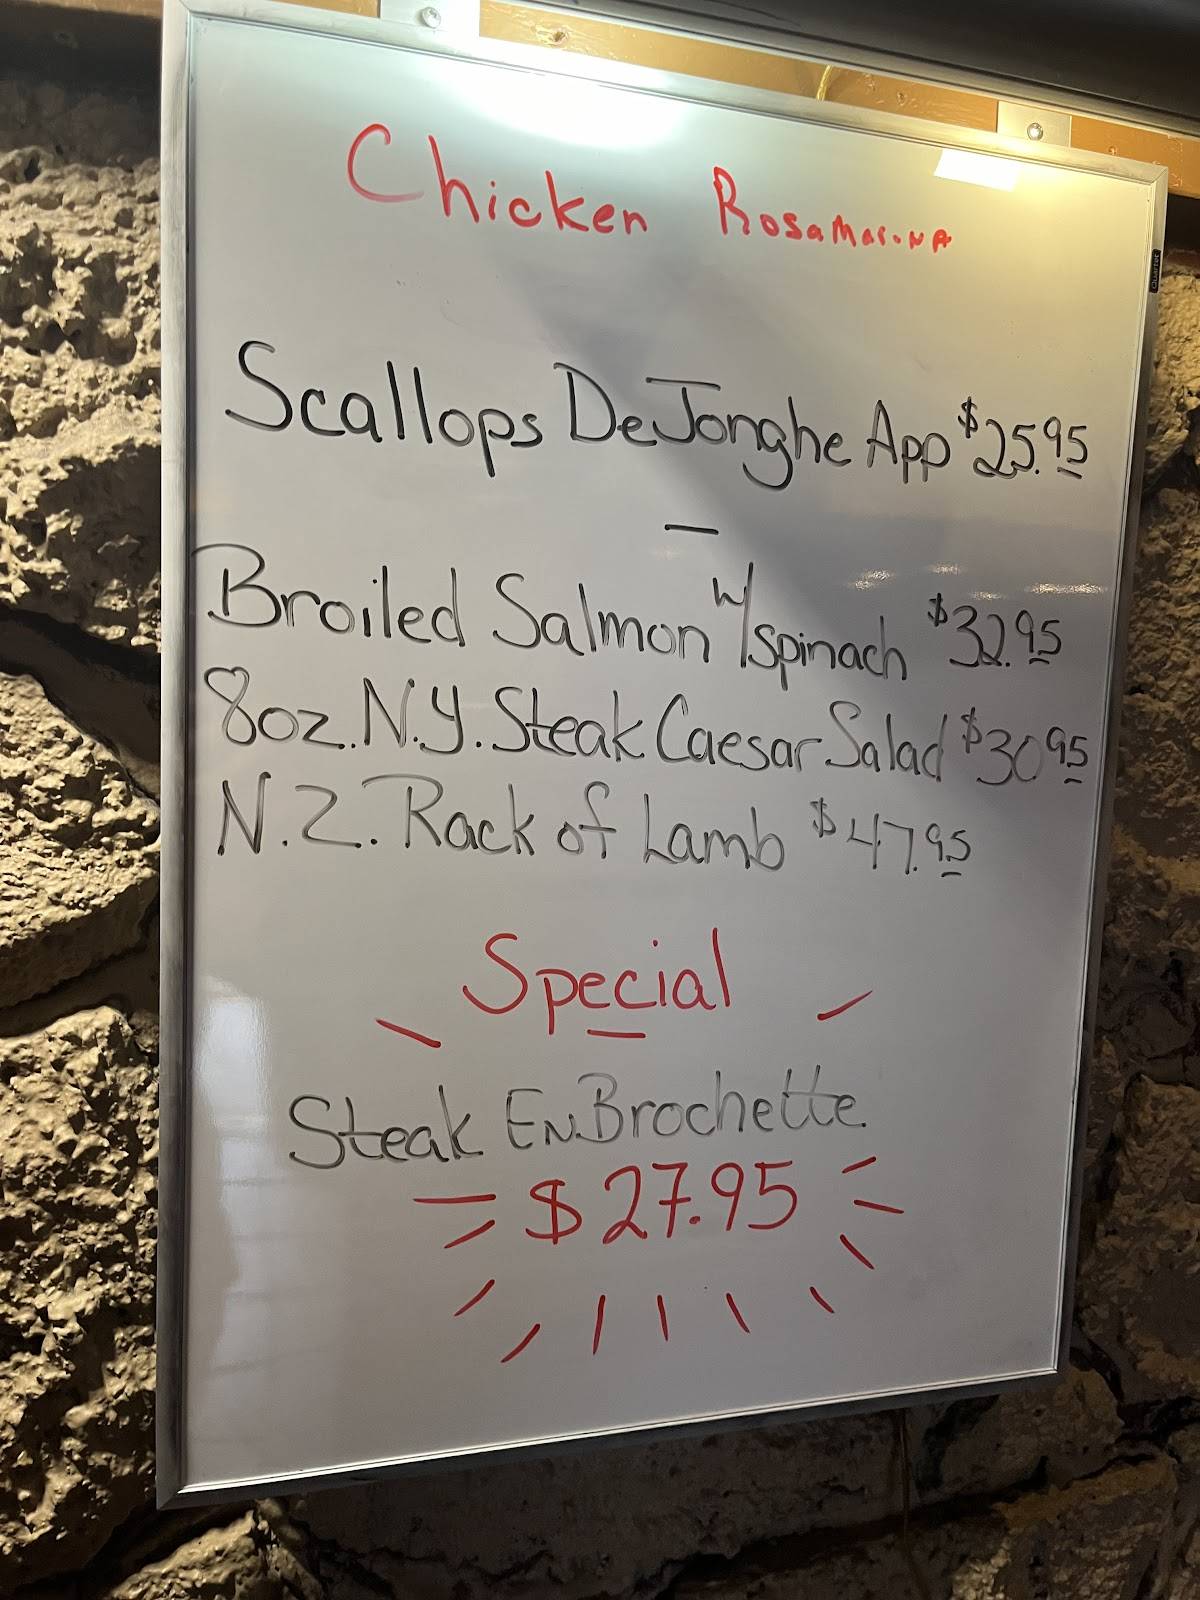 Chicken Rosamarina
Quartet
Scallops DeJonghe App $25.95
Broiled Salmon w/spinach $32.95
8oz. N.Y. Steak Caesar Salad $30.95
N.Z. Rack of Lamb $47.95
Special
Steak En Brochette
$27.95